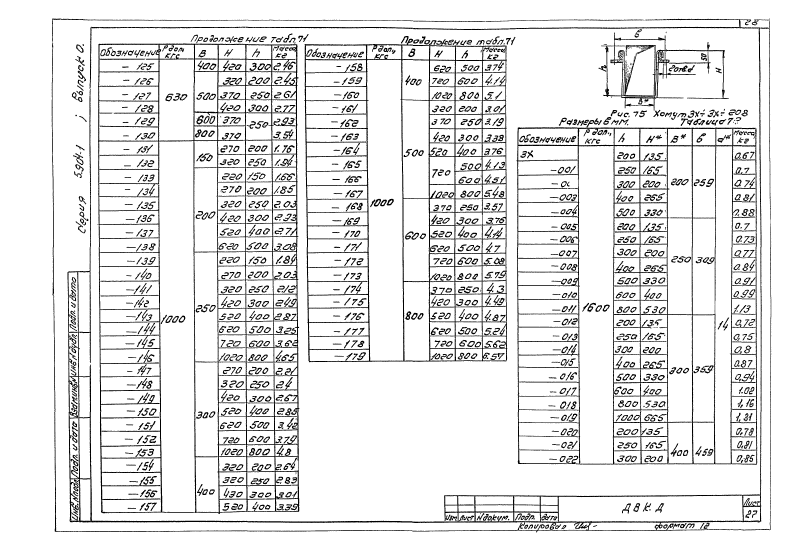 28
Серия 5.904-1 ; Выпуск 0.
Продолжение табл.71
Обозначение Рдоп, кгс В Н h Масса кг
-125 400 420 300 2.46
-126 320 200 2.45
-127 630 500 370 250 2.61
-128 420 300 2.77
-129 600 370 250 2.93
-130 800 370 3.54
-131 150 270 200 1.76
-132 320 250 1.94
-133 220 150 1.66
-134 270 200 1.85
-135 320 250 2.03
-136 200 420 300 2.93
-137 520 400 2.71
-138 620 500 3.08
-139 220 150 1.84
-140 270 200 2.03
-141 320 250 2.12
-142 250 420 300 2.49
-143 1000 520 400 2.87
-144 620 500 3.25
-145 720 600 3.62
-146 1020 800 4.65
-147 270 200 2.21
-148 320 250 2.4
-149 420 300 2.67
-150 300 520 400 2.85
-151 620 500 3.42
-152 720 600 3.79
-153 1020 800 4.8
-154 320 200 2.64
-155 400 320 250 2.83
-156 430 300 3.01
-157 520 400 3.39
Продолжение табл.71
Обозначение Рдоп, кгс В Н h Масса кг
-158 620 500 3.74
-159 400 720 600 4.14
-160 1020 800 5.1
-161 320 200 3.01
-162 370 250 3.19
-163 420 300 3.38
-164 500 520 400 3.76
-165 720 500 4.13
-166 600 4.51
-167 1000 1020 800 5.48
-168 370 250 3.57
-169 420 300 3.76
-170 600 520 400 4.14
-171 620 500 4.7
-172 720 600 5.08
-173 1020 800 5.79
-174 370 250 4.3
-175 420 300 4.49
-176 800 520 400 4.87
-177 620 500 5.24
-178 720 600 5.62
-179 1020 800 6.57
б
h
50
H
2отв.d
В*
Рис. 75 Хомут 3х÷3х÷208
Размеры в мм. Таблица 7
Обозначение Рдоп, кгс h Н* В* б d* Масса кг
3Х 200 135 0.67
-001 250 165 0.7
300 200 200 259 0.74
-003 400 265 0.81
-004 500 330 0.88
-005 200 135 0.7
-006 250 165 0.73
-007 300 200 0.77
-008 250 309 400 265 0.84
-009 500 330 0.91
-010 600 400 0.99
-011 1600 800 530 1,13
-012 200 135 14 0,72
-013 250 165 0.75
-014 300 200 0.8
-015 400 265 0.87
-016 500 330 300 359 0.94
-017 600 400 1.02
-018 800 530 1,16
-019 1000 665 1,31
-020 200 135 0.78
-021 250 165 400 459 0.81
-022 300 200 0,85
Инв.№подл. Подп. и дата Взам.инв.№ Инв.№дубл. Подп. и дата
Изм Лист №докум. Подп. Дата
ДВКД
Лист
27
Копировал
формат 12